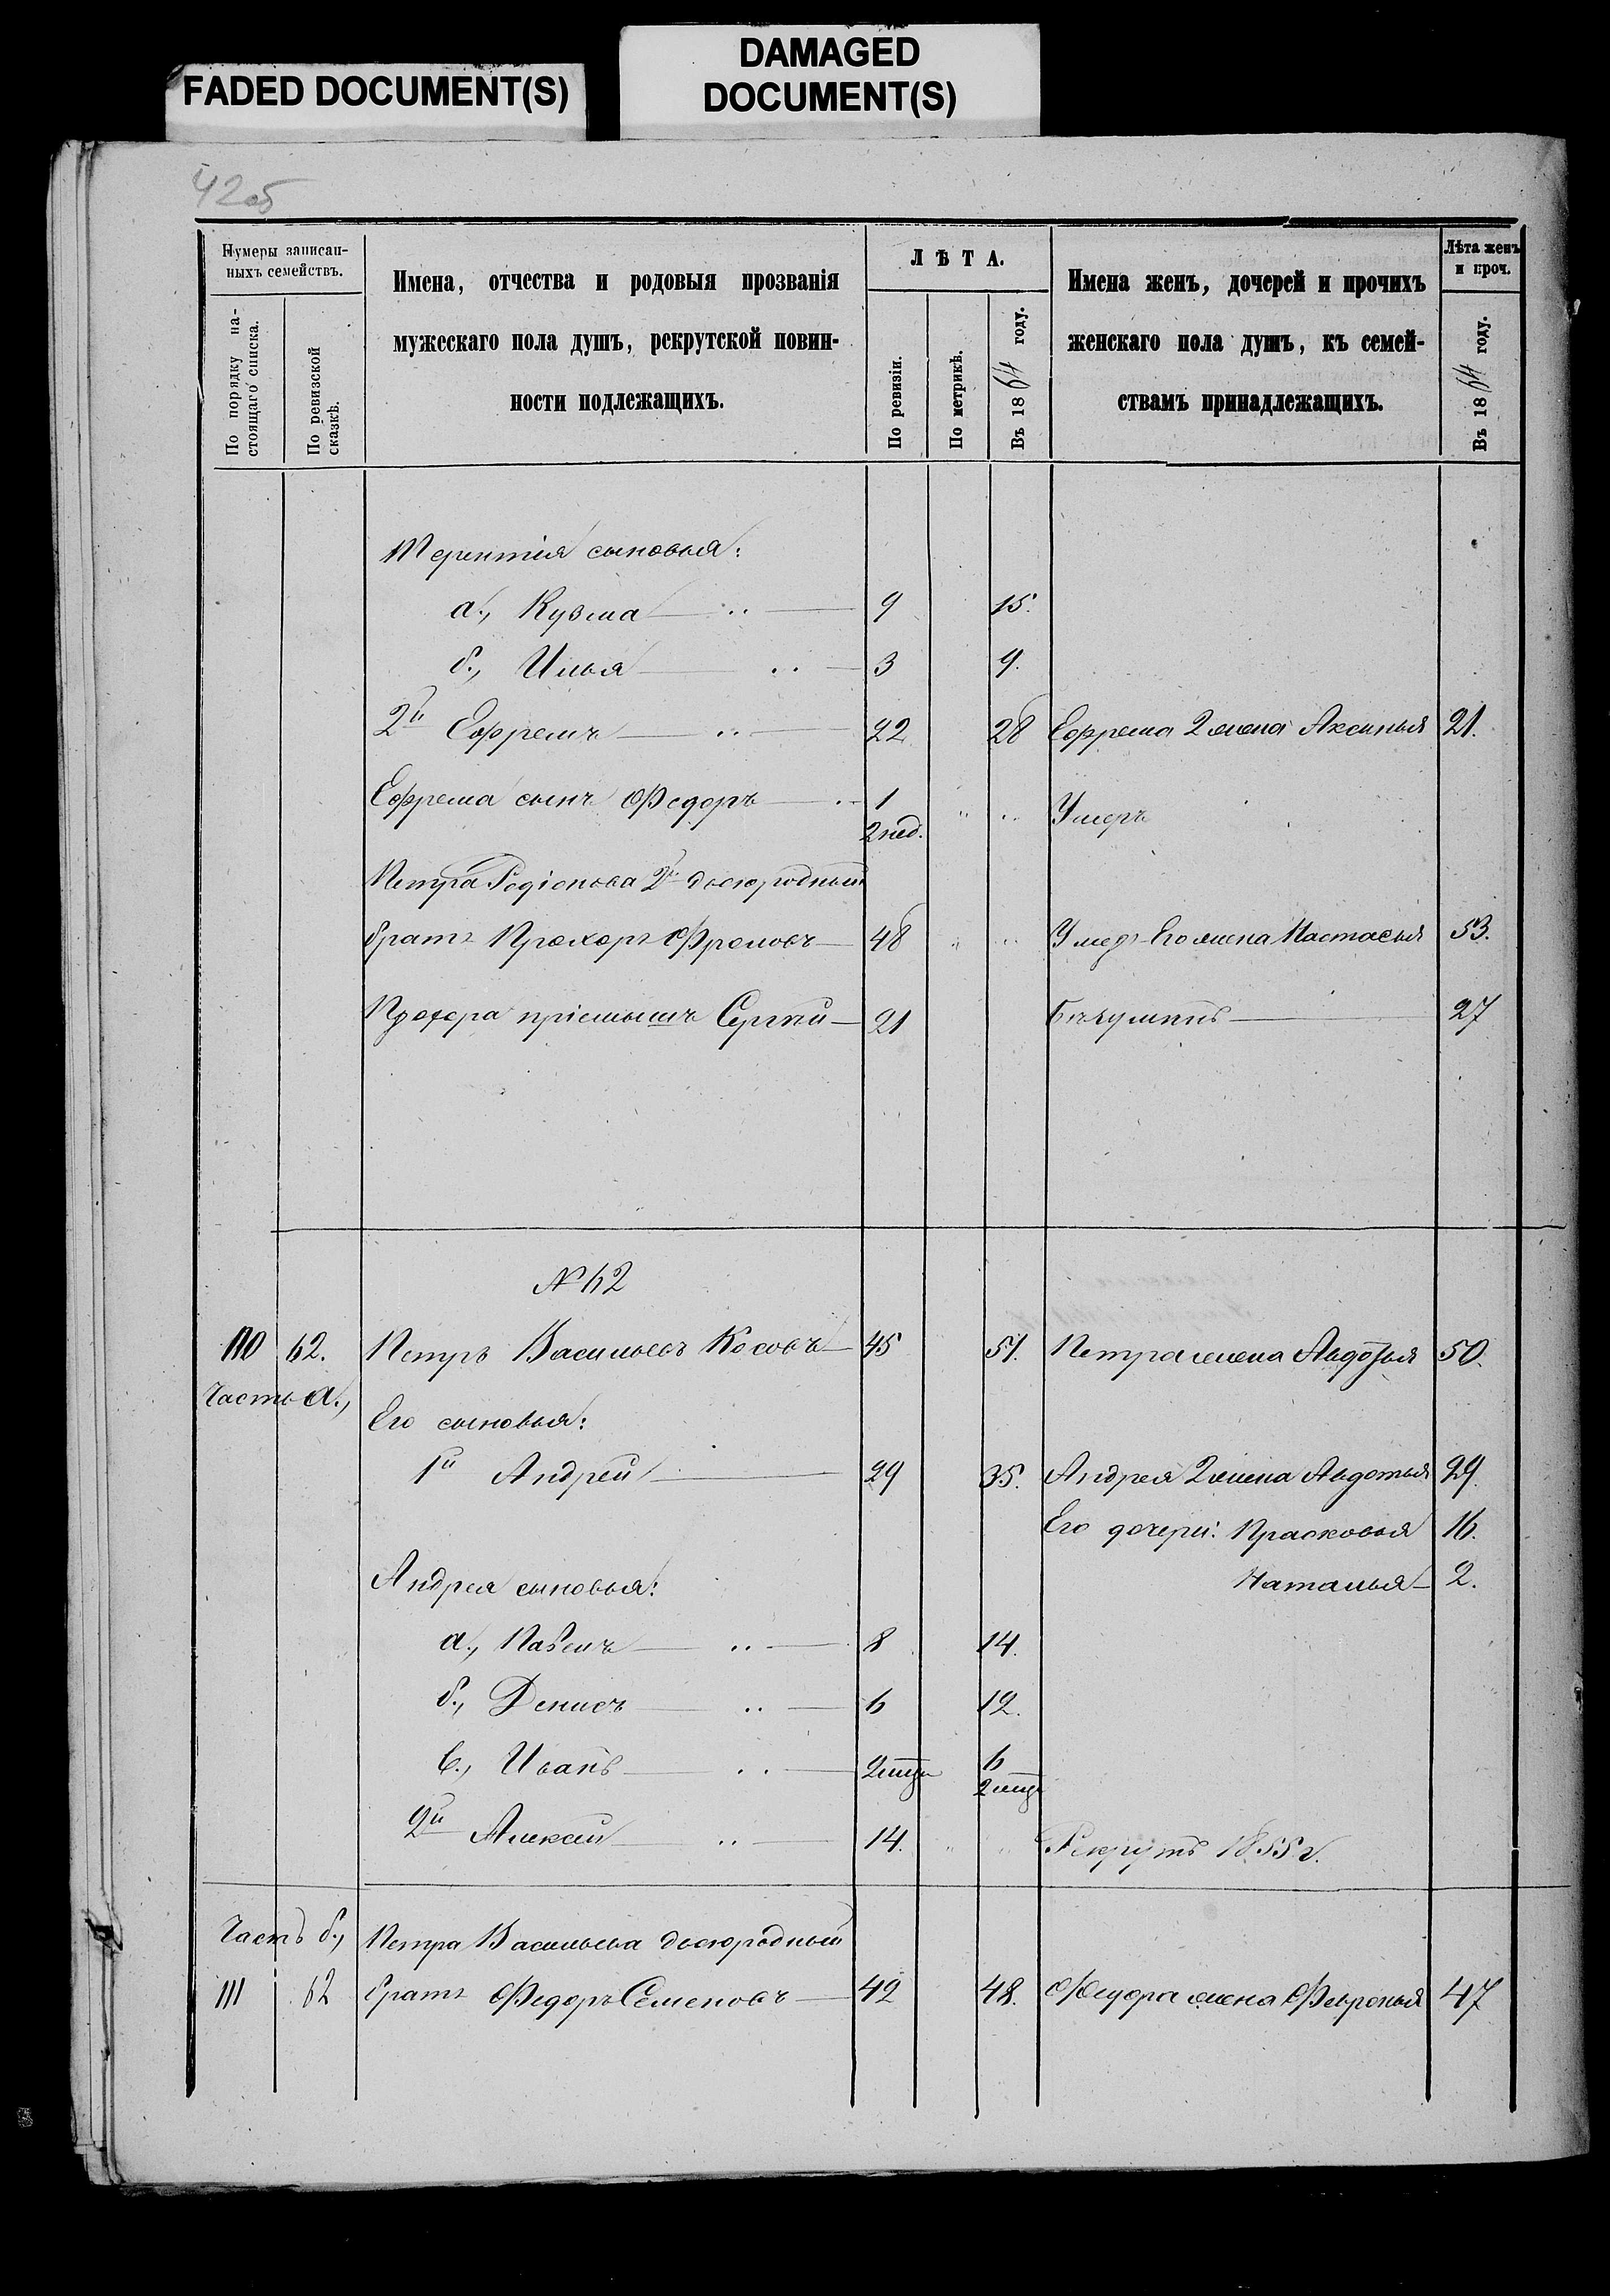 FADED DOCUMENT(S)
DAMAGED
DOCUMENT(S)
42об
Нумеры записан-
ныхъ семействъ.
По порядку на-
стоящаго списка.
По ревизской
сказкѣ.
Имена, отчества и родовыя прозванія
мужескаго пола душъ, рекрутской повин-
ности подлежащихъ.
ЛѢТА.
По ревизіи.
По метрикѣ.
Въ 1864 году.
Имена женъ, дочерей и прочихъ
женскаго пола душъ, къ семей-
ствамъ принадлежащихъ.
Лѣта женъ
и проч.
Въ 1864 году.
Терентія сыновья:
а., Кузма 9 15.
б., Илья 3 9.
2й Ефремъ 22 28 Ефрема 2 жена Аксинья 21.
Ефрема сынъ Федоръ 1
2 нед. " " Умеръ
Петра Родіонова 2й двоюродный
братъ Прохоръ Фроловъ 48 " " Умер. Его жена Настасья 53.
Прохора пріемышъ Сергѣй 21 27
№ 62
110 62. Петръ Васильевъ Косовъ 45 51. Петра жена Авдотья 50.
Часть а.,
Его сыновья:
1й Андрей 29 35. Андрея 2 жена Авдотья 29.
Его дочери: Прасковья 16.
Андрея сыновья: Наталья 2.
а., Павелъ 8 14.
б., Денисъ 6 12.
в., Иванъ 2 мцъ 6
2 мцъ
2й Алексѣй 14. " " Рекрутъ 1855 г.
Часть б., Петра Васильева двоюродный
111 62 братъ Федоръ Семеновъ 42 48. Федора жена Февронья 47